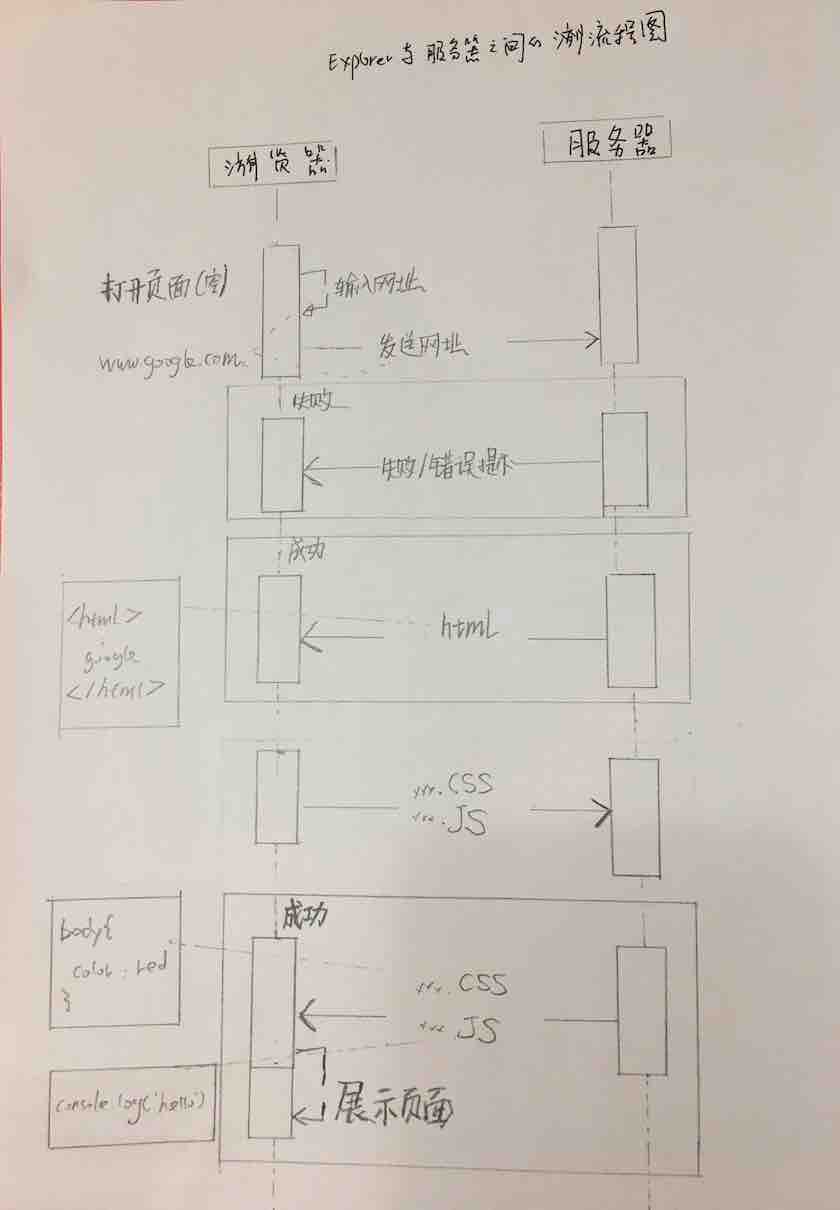 Explorer与服务器之间的 流程图
浏览器
服务器
打开页面(空)
输入网址
www.google.com
发送网址
失败
失败/错误提示
成功
<html>
google
</html>
html
xxx.CSS
xxx.JS
成功
body{
color:red
}
xxx.CSS
xxx.JS
console.log('hello')
展示页面